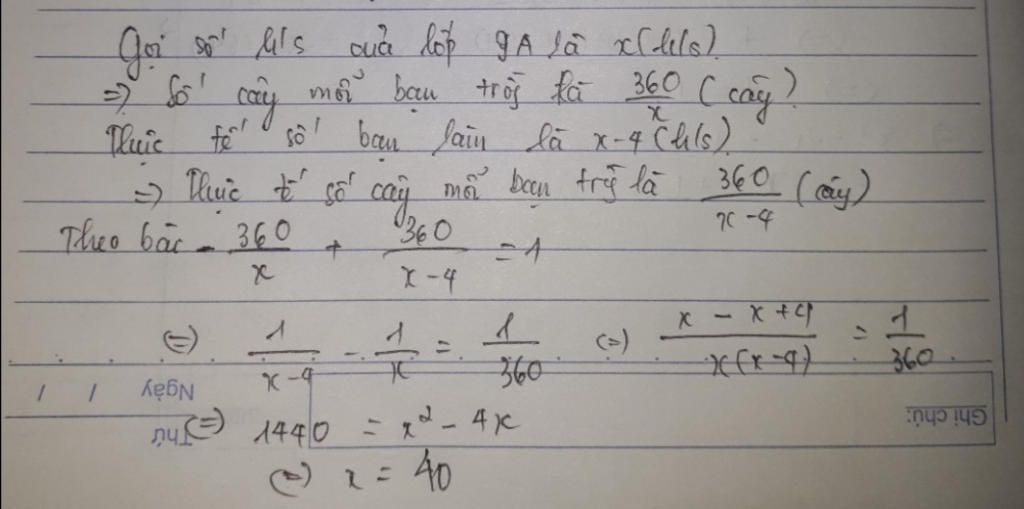 Gọi số h/s của lớp 9A là x(h/s).
=> Số cây mỗi bạn trồg là 360/x (cây).
Thực tế số bạn làm là x-4(h/s).
=> Thực tế số cây mỗi bạn trồg là 360/(x-4) (cây)
Theo bài - 360/x + 360/(x-4) = 1
(=) 1/(x-4) - 1/x = 1/360 (=) (x - x + 4)/(x(x-4)) = 1/360
Ngày / /
Ghi chú:
Thứ
(=) 1440 = x² - 4x
(=) x = 40